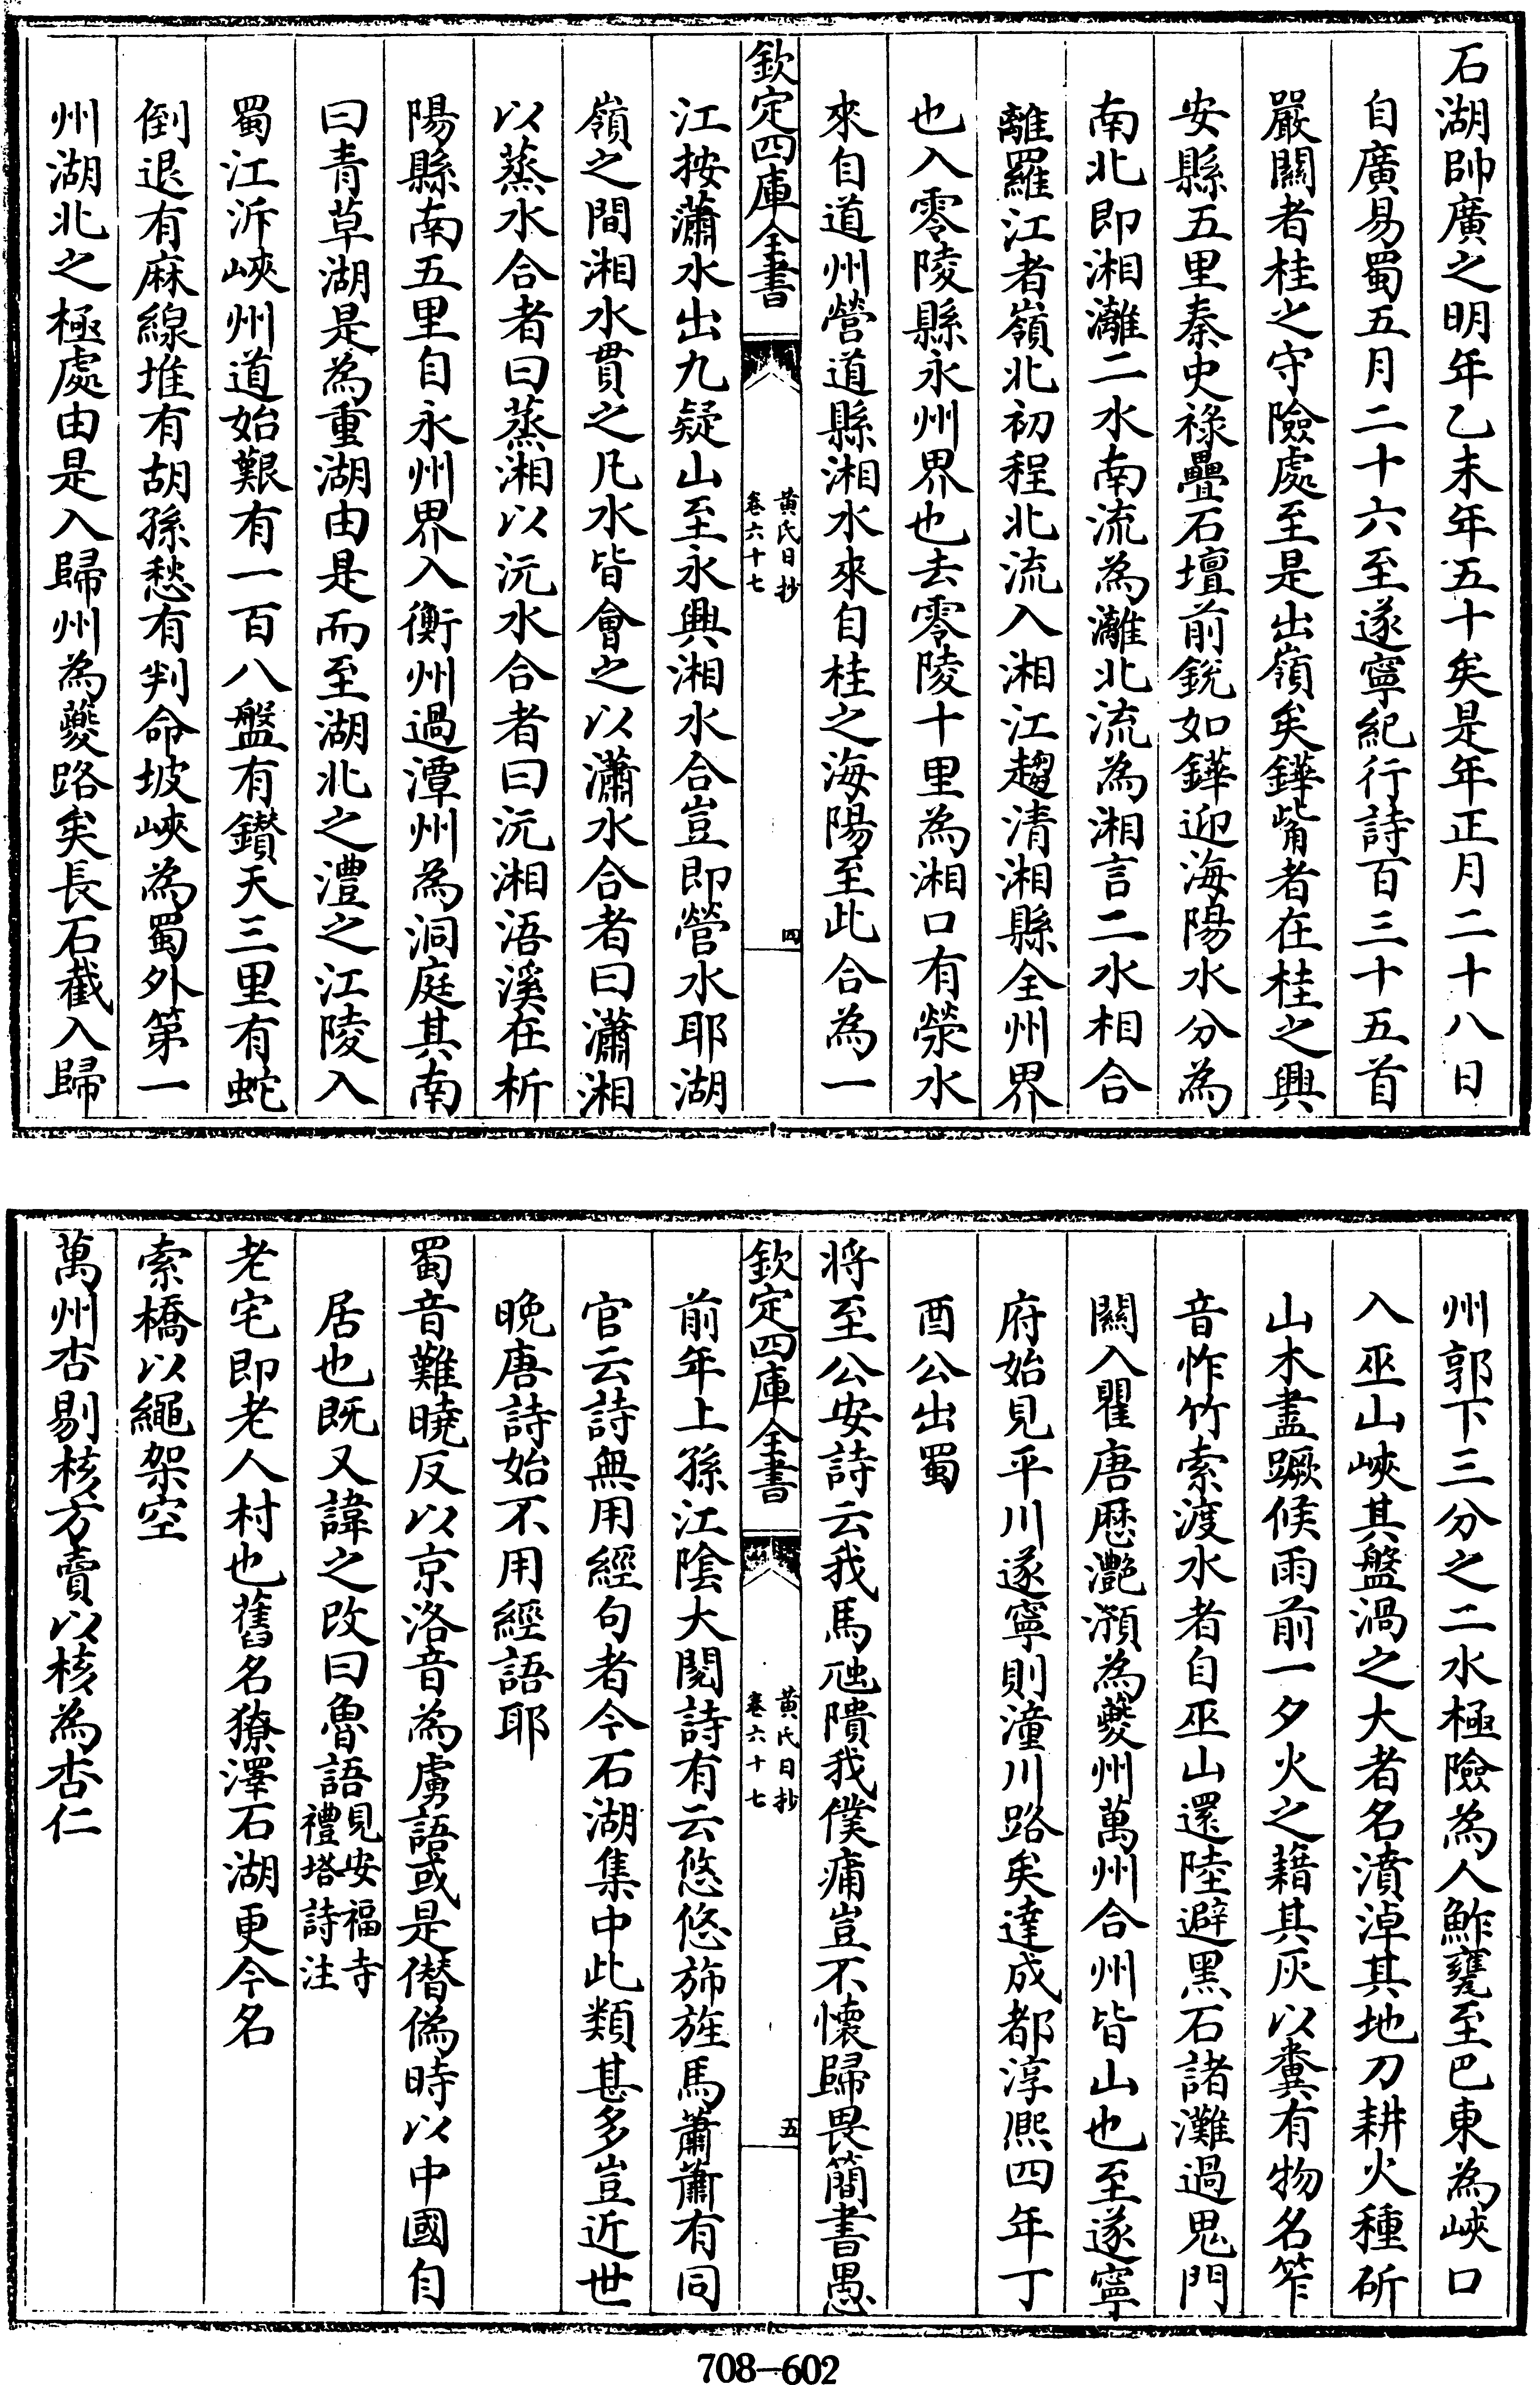 石湖帥廣之明年乙未年五十矣是年正月二十八日
自廣易蜀五月二十六至遂寧紀行詩百三十五首
嚴關者桂之守險處至是出嶺矣鏵觜者在桂之興
安縣五里秦史祿疊石壇前銳如鏵迎海陽水分為
南北即湘灕二水南流為灕北流為湘言二水相合
離羅江者嶺北初程北流入湘江趨清湘縣全州界
也入零陵縣永州界也去零陵十里為湘口有滎水
來自道州營道縣湘水來自桂之海陽至此合為一
欽定四庫全書
黃氏日抄
卷六十七
四
江按瀟水出九疑山至永興湘水合豈即營水耶湖
嶺之間湘水貫之凡水皆會之以瀟水合者曰瀟湘
以蒸水合者曰蒸湘以沅水合者曰沅湘浯溪在祈
陽縣南五里自永州界入衡州過潭州為洞庭其南
曰青草湖是為重湖由是而至湖北之澧之江陵入
蜀江泝峽州道始艱有一百八盤有鑽天三里有蛇
倒退有麻線堆有胡孫愁有判命坡峽為蜀外第一
州湖北之極處由是入歸州為夔路矣長石截入歸
州郭下三分之二水極險為人鮓甕至巴東為峽口
入巫山峽其盤渦之大者名濆淖其地刀耕火種斫
山木盡蹶候雨前一夕火之藉其灰以糞有物名笮
音怍竹索渡水者自巫山還陸避黑石諸灘過鬼門
關入瞿唐歷灧澦為夔州萬州合州皆山也至遂寧
府始見平川遂寧則潼川路矣達成都淳熙四年丁
酉公出蜀
將至公安詩云我馬虺隤我僕痡豈不懷歸畏簡書愚
欽定四庫全書
黃氏日抄
卷六十七
五
前年上孫江陰大閱詩有云悠悠斾旌馬蕭蕭有同
官云詩無用經句者今石湖集中此類甚多豈近世
晚唐詩始不用經語耶
蜀音難曉反以京洛音為虜語或是僭偽時以中國自
居也既又諱之改曰魯語見安福寺禮塔詩注
老宅即老人村也舊名獠澤石湖更今名
索橋以繩架空
萬州杏剔核方賣以核為杏仁
708-602